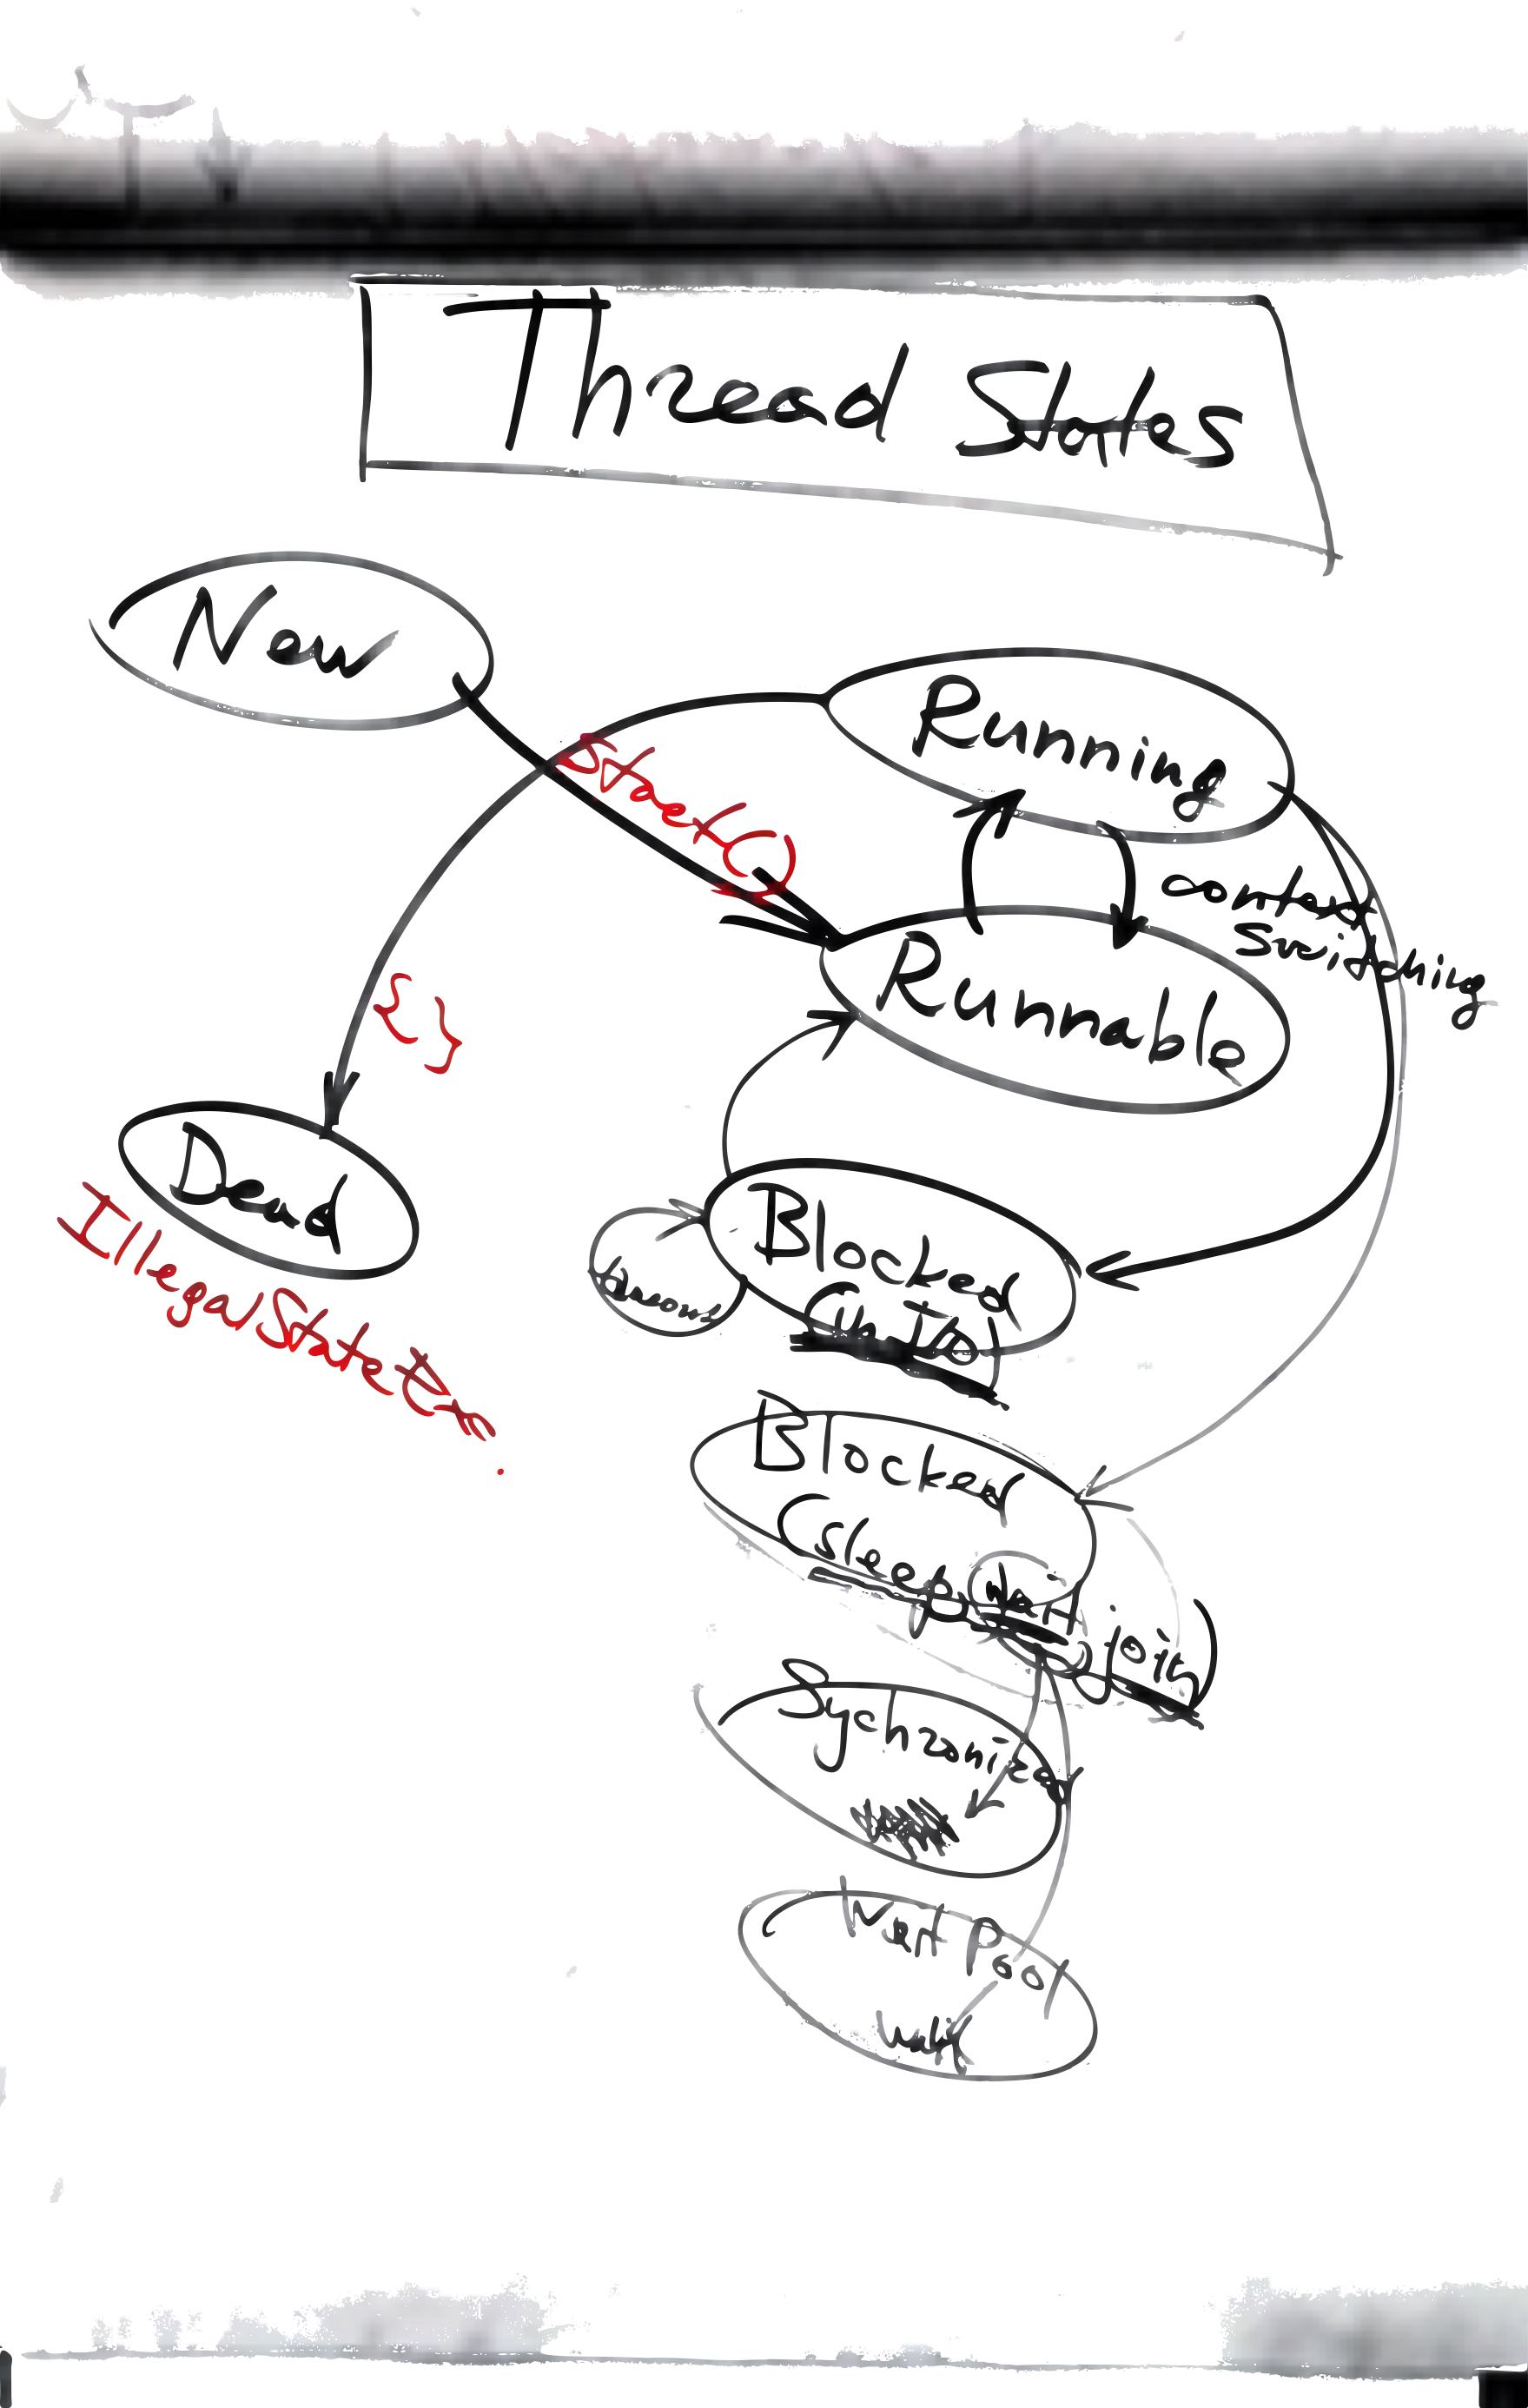 Thread States
New
Running
start()
context
switching
Runnable
{ }
Dead
IllegalStateEx.
Blocked
Blocked
(sleep, wait, join)
Sychronized
Wait Pool